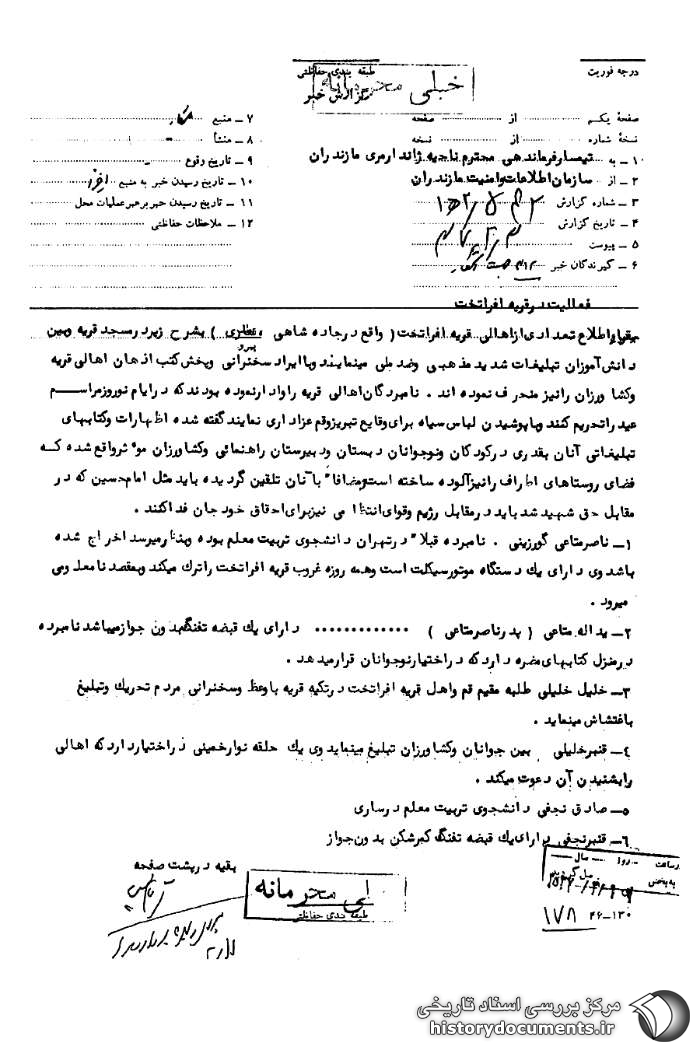 درجه فوریت
طبقه بندی حفاظتی
خیلی محرمانه
گزارش خبر
صفحهٔ یکم از صفحه
نسخهٔ شماره از نسخه
۱ــ به تیمسار فرماندهی محترم ناحیه ژاندارمری مازندران
۲ــ از سازمان اطلاعات و امنیت مازندران
۳ــ شماره گزارش
۴ــ تاریخ گزارش
۵ــ پیوست
۶ــ گیرندگان خبر
۷ــ منبع
۸ــ منشأ
۹ــ تاریخ وقوع
۱۰ــ تاریخ رسیدن خبر به منبع
۱۱ــ تاریخ رسیدن خبر برهبر عملیات محل
۱۲ــ ملاحظات حفاظتی
فعالیت در قریه افراتخت
برابر اطلاع تعدادی از اهالی قریه افراتخت (واقع در جاده شاهی، ) بشرح زیر در مسجد قریه وبین
دانش آموزان تبلیغات شدید مذهبی وضد ملی مینمایند وبا ایراد سخنرانی وپخش کتب اذهان اهالی قریه
وکشاورزان را نیز منحرف نموده اند . نامبردگان اهالی قریه را وادار نموده بودند که در ایام نوروز مراسم
عید را تحریم کنند وبا پوشیدن لباس سیاه برای وقایع تبریز وقم عزاداری نمایند گفته شده اظهارات وکتابهای
تبلیغاتی آنان بقدری در کودکان ونوجوانان دبستان ودبیرستان راهنمائی وکشاورزان موثر واقع شده که
فضای روستاهای اطراف را نیز آلوده ساخته است ومضافا" با آنان تلقین گردیده باید مثل امام حسین که در
مقابل حق شهید شد باید در مقابل رژیم وقوای انتظامی نیز برای احقاق خود جان فدا کنند .
۱ــ ناصر متاعی گورزینی . نامبرده قبلا" در تهران دانشجوی تربیت معلم بوده وبنظر میرسد اخراج شده
باشد وی دارای یك دستگاه موتورسیکلت است وهمه روزه غروب قریه افراتخت را ترك میکند وبمقصد نامعلومی
میرود .
۲ــ یداله متاعی (پدر ناصر متاعی) ............. دارای یك قبضه تفنگ بدون جواز میباشد نامبرده
در منزل کتابهای مضره دارد که در اختیار نوجوانان قرار میدهد .
۳ــ خلیل خلیلی طلبه مقیم قم واهل قریه افراتخت در تکیه قریه با وعظ وسخنرانی مردم تحریك وتبلیغ
باغتشاش مینماید .
۴ــ قنبر خلیلی بین جوانان وکشاورزان تبلیغ مینماید وی یك حلقه نوار خمینی در اختیار دارد که اهالی
را بشنیدن آن دعوت میکند .
۵ــ صادق نجفی دانشجوی تربیت معلم در ساری
۶ــ قنبر نجفی دارای یك قبضه تفنگ کمرشکن بدون جواز
بقیه در پشت صفحه
محرمانه
طبقه بندی حفاظتی
در ساعت روز سال
به بخش
۱۷۸
۴۶ــ۱۳۰
مرکز بررسی اسناد تاریخی
historydocuments.ir